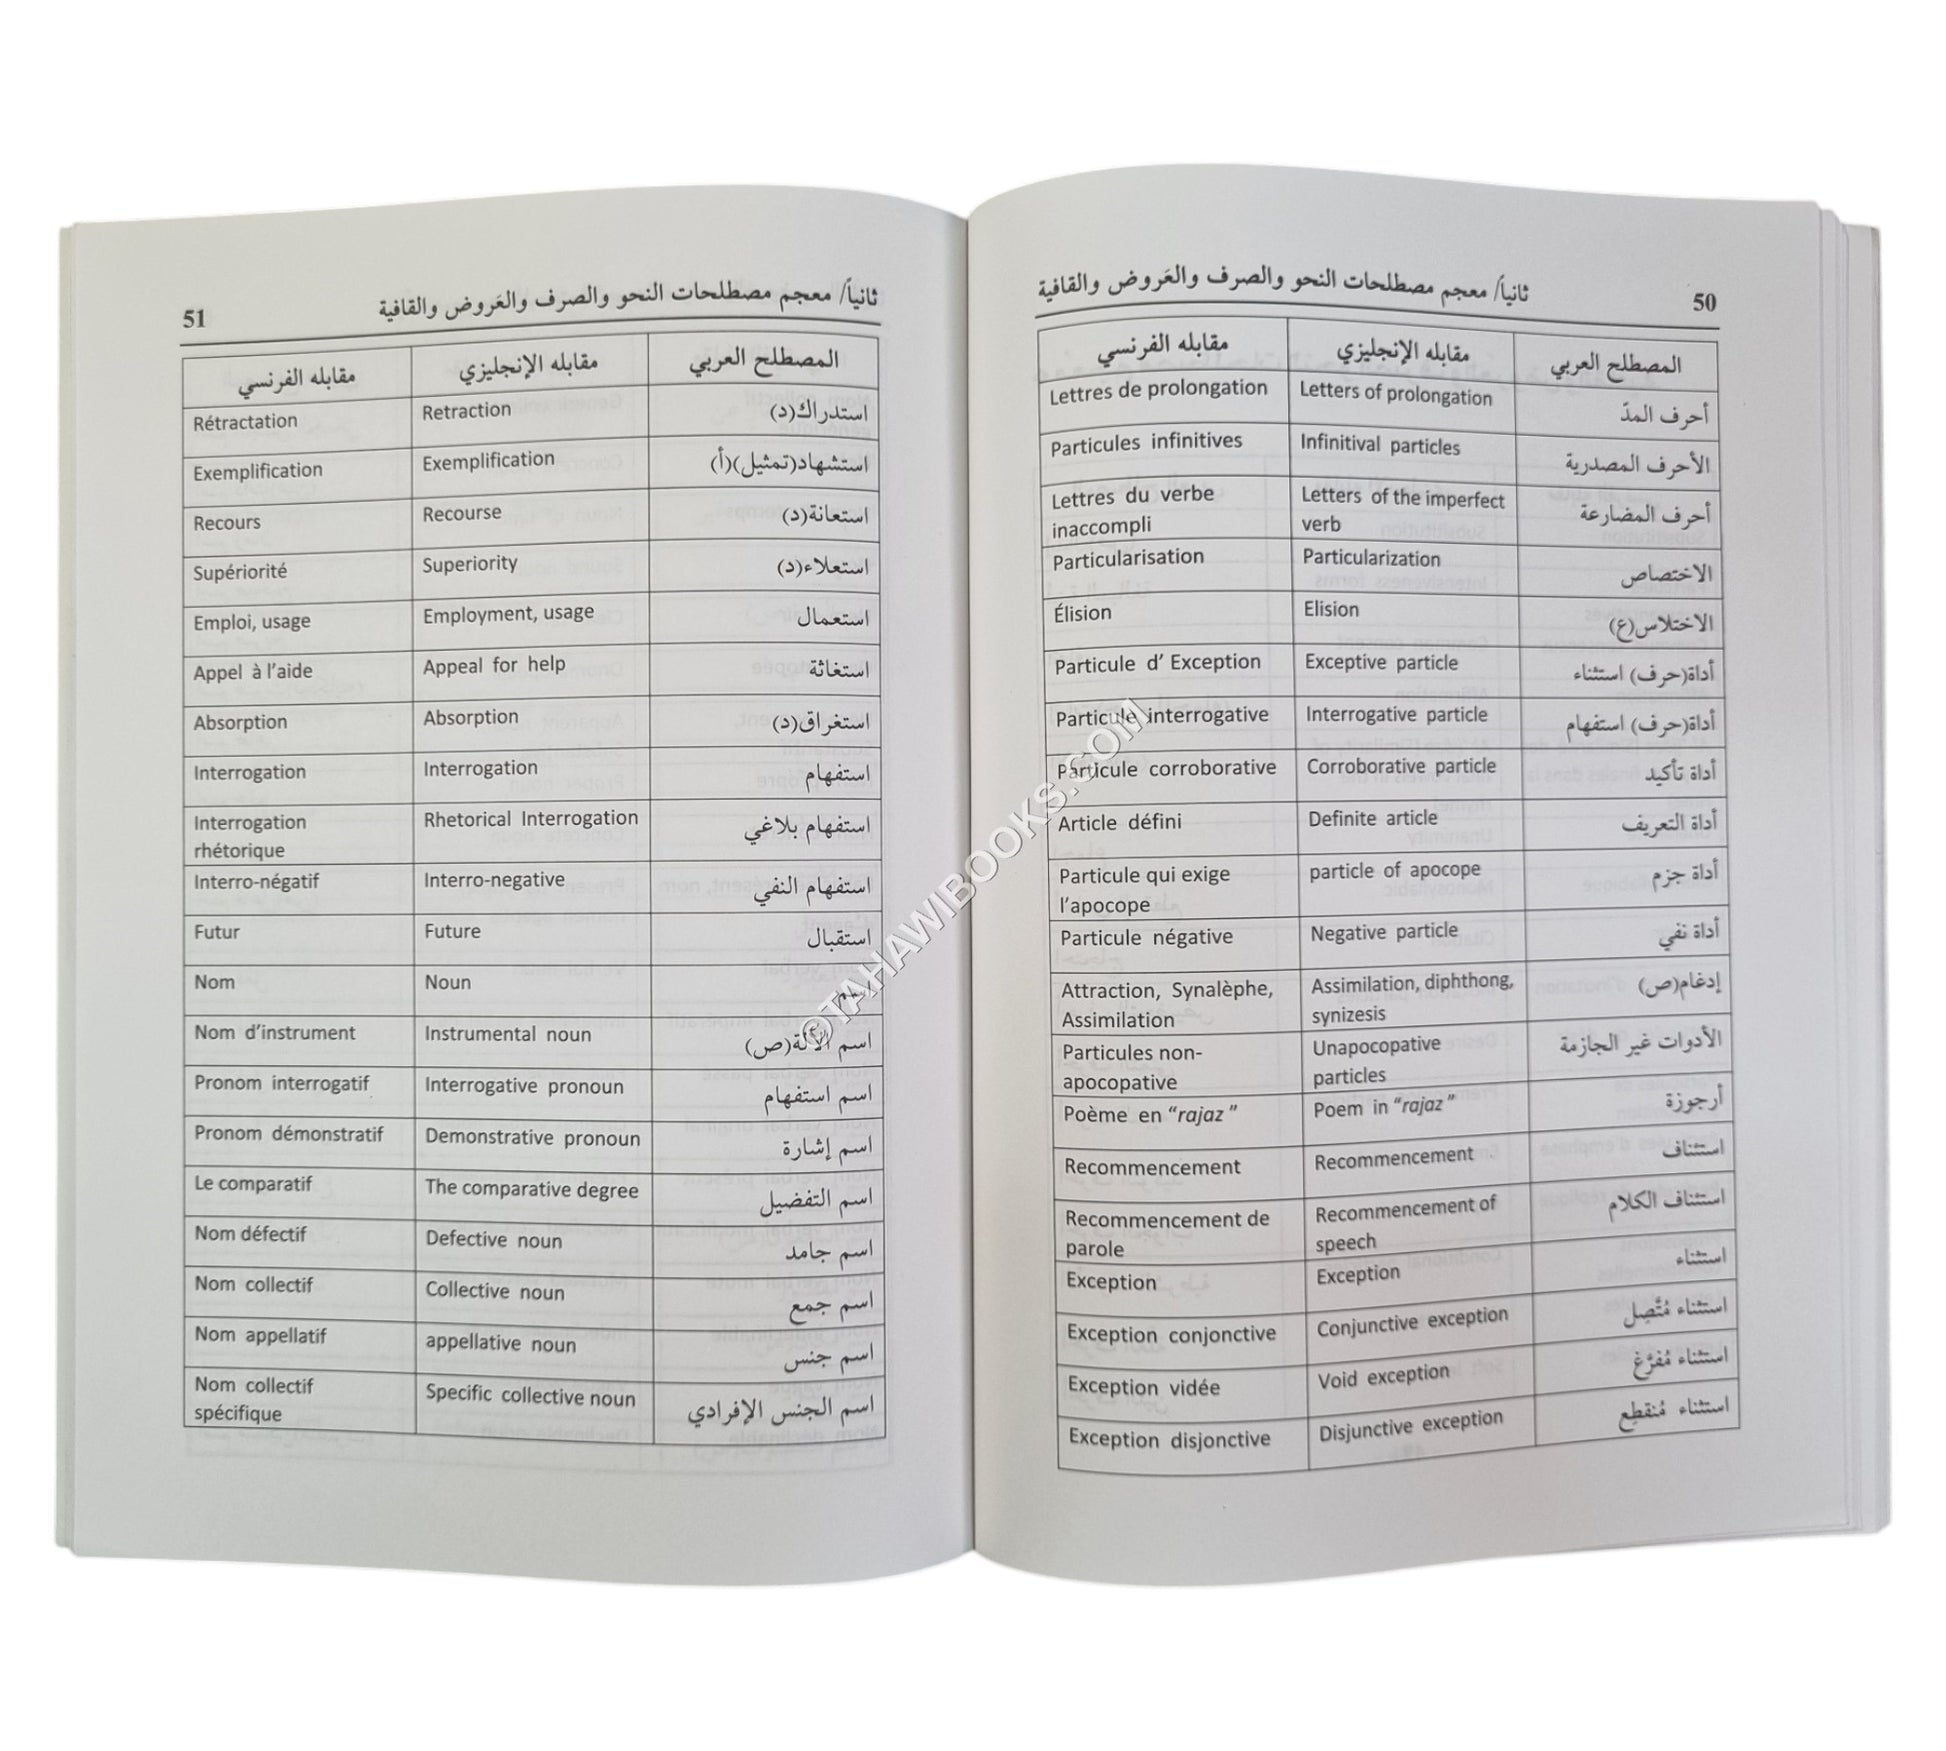 50 ثانياً/ معجم مصطلحات النحو والصرف والعَروض والقافية
المصطلح العربي مقابله الإنجليزي مقابله الفرنسي
أحرف المدّ Letters of prolongation Lettres de prolongation
الأحرف المصدرية Infinitival particles Particules infinitives
أحرف المضارعة Letters of the imperfect verb Lettres du verbe inaccompli
الاختصاص Particularization Particularisation
الاختلاس(ع) Elision Élision
أداة(حرف) استثناء Exceptive particle Particule d’ Exception
أداة(حرف) استفهام Interrogative particle Particule interrogative
أداة تأكيد Corroborative particle Particule corroborative
أداة التعريف Definite article Article défini
أداة جزم particle of apocope Particule qui exige l’apocope
أداة نفي Negative particle Particule négative
إدغام(ص) Assimilation, diphthong, synizesis Attraction, Synalèphe, Assimilation
الأدوات غير الجازمة Unapocopative particles Particules non-apocopative
أرجوزة Poem in “rajaz” Poème en “rajaz”
استئناف Recommencement Recommencement
استئناف الكلام Recommencement of speech Recommencement de parole
استثناء Exception Exception
استثناء مُتَّصِل Conjunctive exception Exception conjonctive
استثناء مُفرَّغ Void exception Exception vidée
استثناء مُنقطِع Disjunctive exception Exception disjonctive
ثانياً/ معجم مصطلحات النحو والصرف والعَروض والقافية 51
المصطلح العربي مقابله الإنجليزي مقابله الفرنسي
استدراك(د) Retraction Rétractation
استشهاد(تمثيل)(أ) Exemplification Exemplification
استعانة(د) Recourse Recours
استعلاء(د) Superiority Supériorité
استعمال Employment, usage Emploi, usage
استغاثة Appeal for help Appel à l’aide
استغراق(د) Absorption Absorption
استفهام Interrogation Interrogation
استفهام بلاغي Rhetorical Interrogation Interrogation rhétorique
استفهام النفي Interro-negative Interro-négatif
استقبال Future Futur
اسم Noun Nom
اسم الآلة(ص) Instrumental noun Nom d’instrument
اسم استفهام Interrogative pronoun Pronom interrogatif
اسم إشارة Demonstrative pronoun Pronom démonstratif
اسم التفضيل The comparative degree Le comparatif
اسم جامد Defective noun Nom défectif
اسم جمع Collective noun Nom collectif
اسم جنس appellative noun Nom appellatif
اسم الجنس الإفرادي Specific collective noun Nom collectif spécifique
©TAHAWIBOOKS.COM